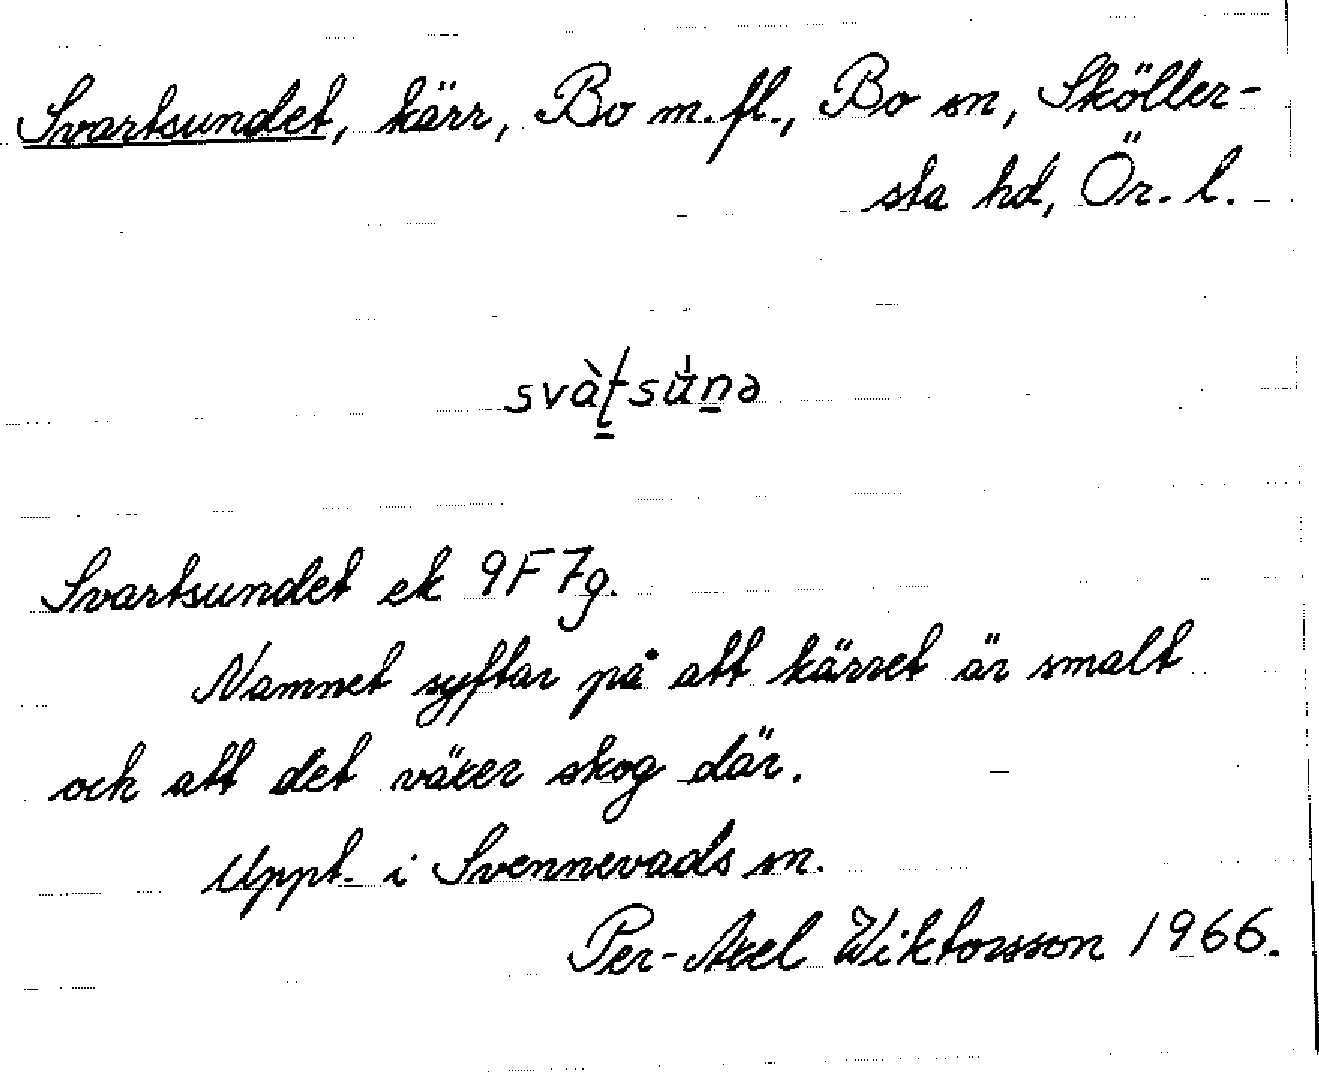 Svartsundet, kärr, Bo m.fl., Bo sn, Sköller-
sta hd, Ör. l.
svàʈsu̇̀n̲ə
Svartsundet ek 9F7g.
Namnet syftar på att kärret är smalt
och att det växer skog där.
Uppt. i Svennevads sn.
Per-Axel Wiktorsson 1966.